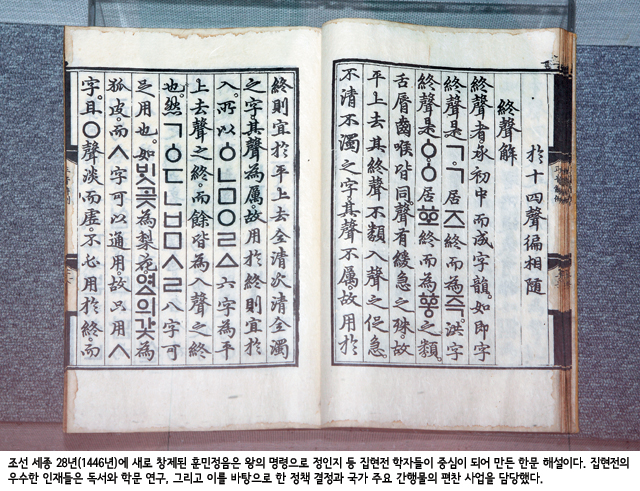 於十四聲徧相隨
終聲解
終聲者承初中而成字韻。如即字
終聲是ㄱ。ㄱ居즈終而為즉。洪字
終聲是ㆁ。ㆁ居ᅘᅩ終而為ᅘᅩᇰ之類。
舌脣齒喉皆同。聲有緩急之殊。故
平上去其終聲不類入聲之促急。
不清不濁之字。其聲不厲。故用於
終則宜於平上去。全清次清全濁
之字。其聲為厲。故用於終則宜於
入。所以ㆁㄴㅁㅇㄹㅿ六字為平
上去聲之終。而餘皆為入聲之終
也。然ㄱㆁㄷㄴㅂㅁㅅㄹ八字可
足用也。如ᄇᆡᆺ곶為梨花。여ᇫ의갗為
狐皮。而ㅅ字可以通用。故只用ㅅ
字。且ㅇ聲淡而虛。不必用於終。而
조선 세종 28년(1446년)에 새로 창제된 훈민정음은 왕의 명령으로 정인지 등 집현전 학자들이 중심이 되어 만든 한문 해설이다. 집현전의
우수한 인재들은 독서와 학문 연구, 그리고 이를 바탕으로 한 정책 결정과 국가 주요 간행물의 편찬 사업을 담당했다.